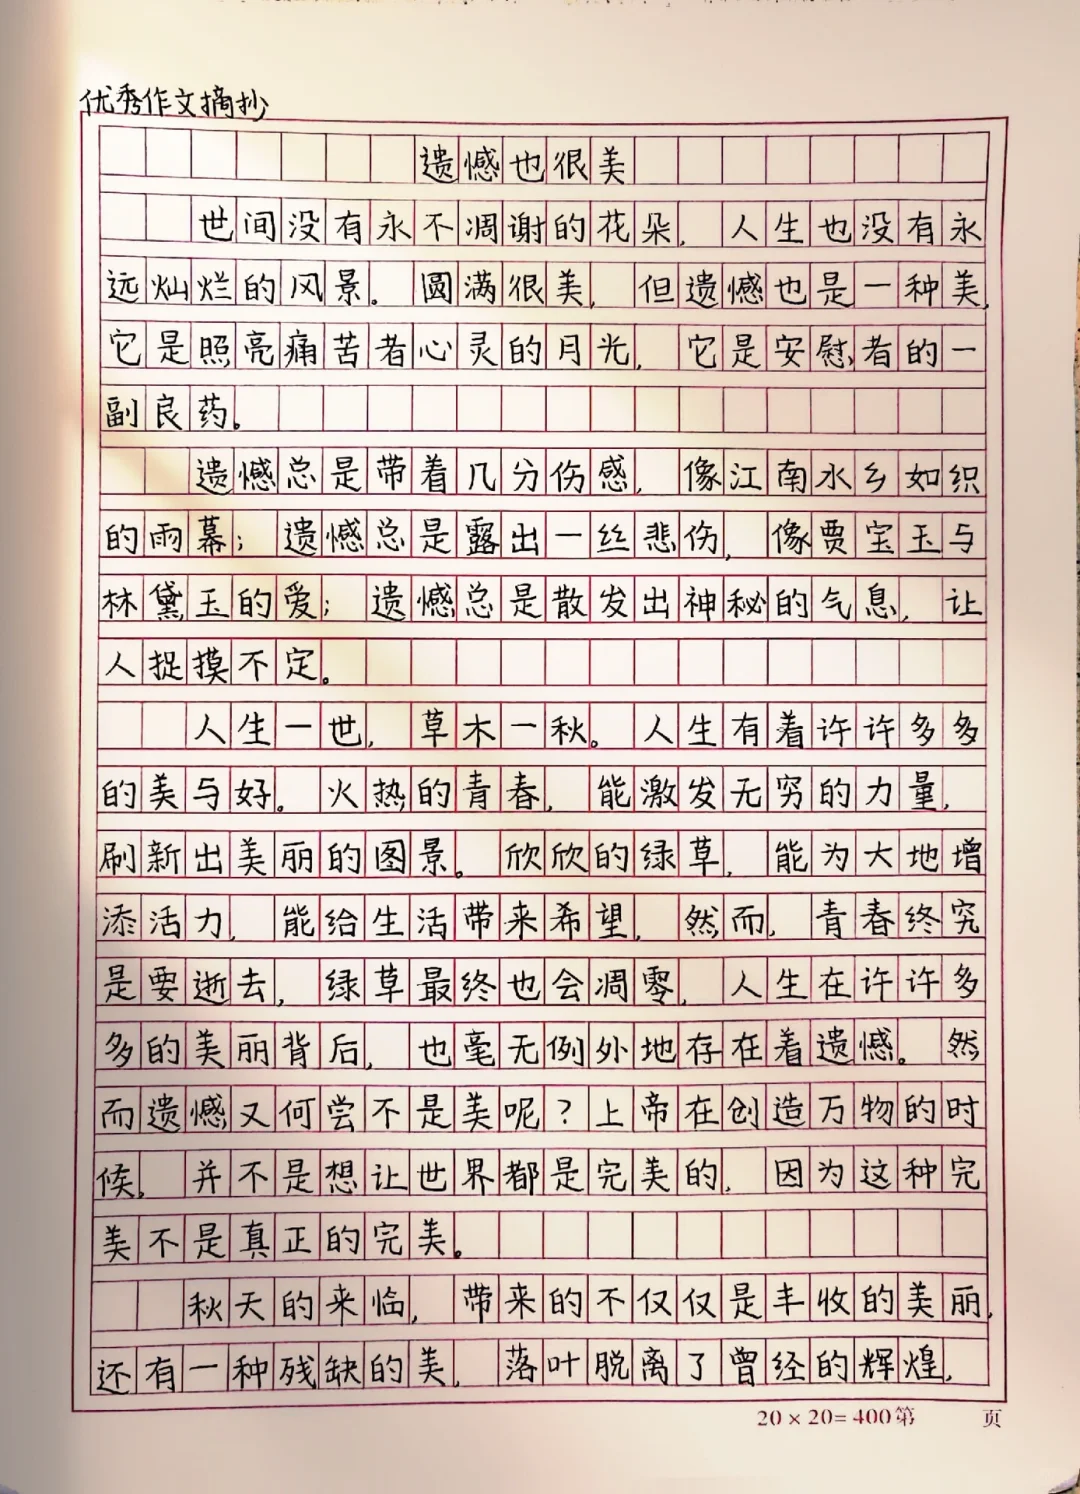 优秀作文摘抄
遗憾也很美
世间没有永不凋谢的花朵，人生也没有永
远灿烂的风景。圆满很美，但遗憾也是一种美，
它是照亮痛苦者心灵的月光，它是安慰者的一
副良药。
遗憾总是带着几分伤感，像江南水乡如织
的雨幕；遗憾总是露出一丝悲伤，像贾宝玉与
林黛玉的爱；遗憾总是散发出神秘的气息，让
人捉摸不定。
人生一世，草木一秋。人生有着许许多多
的美与好。火热的青春，能激发无穷的力量，
刷新出美丽的图景。欣欣的绿草，能为大地增
添活力，能给生活带来希望，然而，青春终究
是要逝去，绿草最终也会凋零，人生在许许多
多的美丽背后，也毫无例外地存在着遗憾。然
而遗憾又何尝不是美呢？上帝在创造万物的时
候，并不是想让世界都是完美的，因为这种完
美不是真正的完美。
秋天的来临，带来的不仅仅是丰收的美丽，
还有一种残缺的美，落叶脱离了曾经的辉煌，
20×20=400 第 页